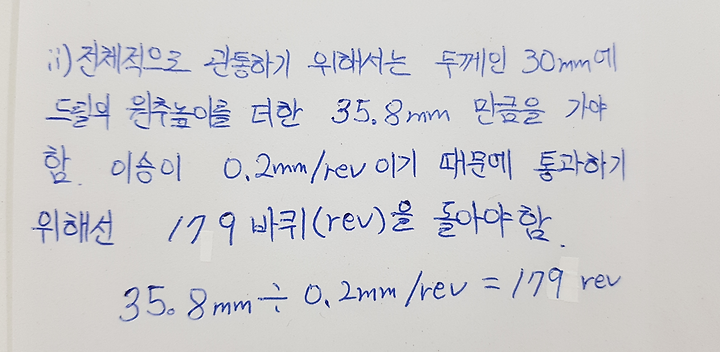 ii) 전체적으로 관통하기 위해서는 두께인 30mm에
드릴의 원추높이를 더한 35.8mm 만큼을 가야
함. 이송이 0.2mm/rev 이기 때문에 통과하기
위해선 179 바퀴(rev)을 돌아야함.
35.8mm ÷ 0.2mm/rev = 179 rev